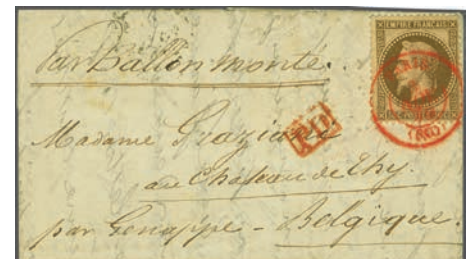 EMPIRE FRANÇAIS
Par Ballon monté.
PARIS
(60)
PD
Madame Graziani
au Chateau de Thy.
par Genappe - Belgique.